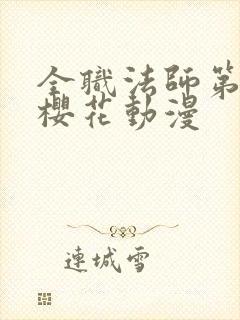 全職法師第
櫻花動漫
連城雪